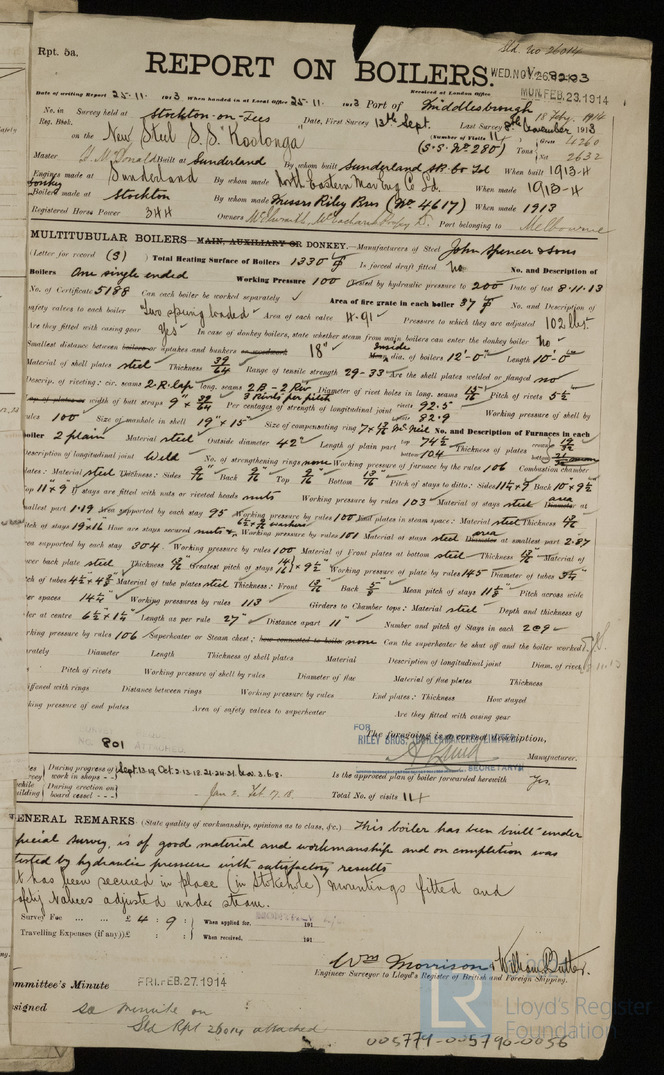 Rpt. 5a.
Sld. No 26014
REPORT ON BOILERS.
WED. NOV. 26. 1913
MON. FEB. 23. 1914
Date of writing Report 25-11- 1913 When handed in at Local Office 25-11- 1913 Port of Middlesbrough
Received at London Office
No. in Survey held at Stockton-on-Tees Date, First Survey 13th Sept. Last Survey 8th November 1913
18 Feby. 1914
Reg. Book.
(Number of Visits 11
on the New Steel S.S. "Koolonga" (S.S. No 280) Tons Gross 4260 Net 2632
Master Built at Sunderland By whom built Sunderland SB. Co Ld When built 1913-4
Engines made at Sunderland By whom made North Eastern Mar. Eng. Co. Ld. When made 1913-4
Donkey Boilers made at Stockton By whom made Messrs Riley Bros (No 4617) When made 1913
Registered Horse Power 344 Owners McIlwraith, McEacharn Port belonging to Melbourne
MULTITUBULAR BOILERS MAIN, AUXILIARY OR DONKEY.— Manufacturers of Steel John Spencer & Sons
(Letter for record (S) Total Heating Surface of Boilers 1330 Is forced draft fitted no No. and Description of
Boilers One single ended Working Pressure 100 Tested by hydraulic pressure to 200 Date of test 8.11.13
No. of Certificate 5188 Can each boiler be worked separately Area of fire grate in each boiler 37 No. and Description of
safety valves to each boiler Two spring loaded Area of each valve 4.91 Pressure to which they are adjusted 102 lbs
Are they fitted with easing gear Yes In case of donkey boilers, state whether steam from main boilers can enter the donkey boiler no
Smallest distance between boiler or uptakes and bunkers or woodwork 18" Inside dia. of boilers 12'-0" Length 10'-0"
Material of shell plates steel Thickness 39/64 Range of tensile strength 29-33 Are the shell plates welded or flanged no
Descrip. of riveting: cir. seams 2.R.Lap long. seams 2B-2Riv 3 Rivets per pitch Diameter of rivet holes in long. seams 15/16 Pitch of rivets 5½
width of butt straps 9" x 32/64 Per centages of strength of longitudinal joint rivets 92.5 82.9 Working pressure of shell by
rules 100 Size of manhole in shell 19" x 15" Size of compensating ring McNeil No. and Description of Furnaces in each
boiler 2 plain Material steel Outside diameter 42" Length of plain part top 74½ bottom 104 Thickness of plates
Description of longitudinal joint Weld No. of strengthening rings none Working pressure of furnace by the rules 106 Combustion chamber
plates: Material steel Thickness: Sides 9/16 Back 9/16 Top 9/16 Bottom 13/16 Pitch of stays to ditto: Sides 11½ x 9 Back 10 x 9½
Top 11" x 9" If stays are fitted with nuts or riveted heads nuts Working pressure by rules 103 Material of stays steel area
smallest part 1.19 Area supported by each stay 95 Working pressure by rules 100 End plates in steam space: Material steel Thickness
Pitch of stays 19 x 16 How are stays secured nuts & washers Working pressure by rules 101 Material of stays steel area at smallest part 2.87
Area supported by each stay 304 Working pressure by rules 100 Material of Front plates at bottom steel Thickness Material of
Lower back plate steel Thickness Greatest pitch of stays 14 x 9½ Working pressure of plate by rules 145 Diameter of tubes 3¼
Pitch of tubes 4½ x 4½ Material of tube plates steel Thickness: Front Back 5/8 Mean pitch of stays 11⅛ Pitch across wide
water spaces 14¼ Working pressures by rules 113 Girders to Chamber tops: Material steel Depth and thickness of
girder at centre 6½ x 1¼ Length as per rule 27" Distance apart 11" Number and pitch of Stays in each 2@9
Working pressure by rules 106 Superheater or Steam chest; how connected to boiler none Can the superheater be shut off and the boiler worked
separately Diameter Length Thickness of shell plates Material Description of longitudinal joint Diam. of rivet
Pitch of rivets Working pressure of shell by rules Diameter of flue Material of flue plates Thickness
stiffened with rings Distance between rings Working pressure by rules End plates: Thickness How stayed
Working pressure of end plates Area of safety valves to superheater Are they fitted with easing gear
NO. 801 ATTACHED.
FOR
The foregoing is a correct description,
RILEY BROS. (BOILERMAKERS) LIMITED
SECRETARY
Manufacturer.
During progress of work in shops - - Sept. 13.19. Oct. 2.13.18.21.24.31. Nov. 3.6.8. Is the approved plan of boiler forwarded herewith Yes.
During erection on board vessel - - - Jan 2. Feb. 17. 18. Total No. of visits 14
GENERAL REMARKS (State quality of workmanship, opinions as to class, &c.) This boiler has been built under
special survey, is of good material and workmanship and on completion was
tested by hydraulic pressure with satisfactory results
It has been secured in place (in Stokehole) mountings fitted and
safety valves adjusted under steam.
Survey Fee ... ... £ 4 : 9 : When applied for, 191
Travelling Expenses (if any) £ : : When received, 191
Wm Morrison & William Butler.
Engineer Surveyor to Lloyd's Register of British and Foreign Shipping.
Committee's Minute FRI. FEB. 27. 1914
Assigned see minute on
Sld Rpt 26014 attached
LR
Lloyd's Register
Foundation
005779-005790-0056